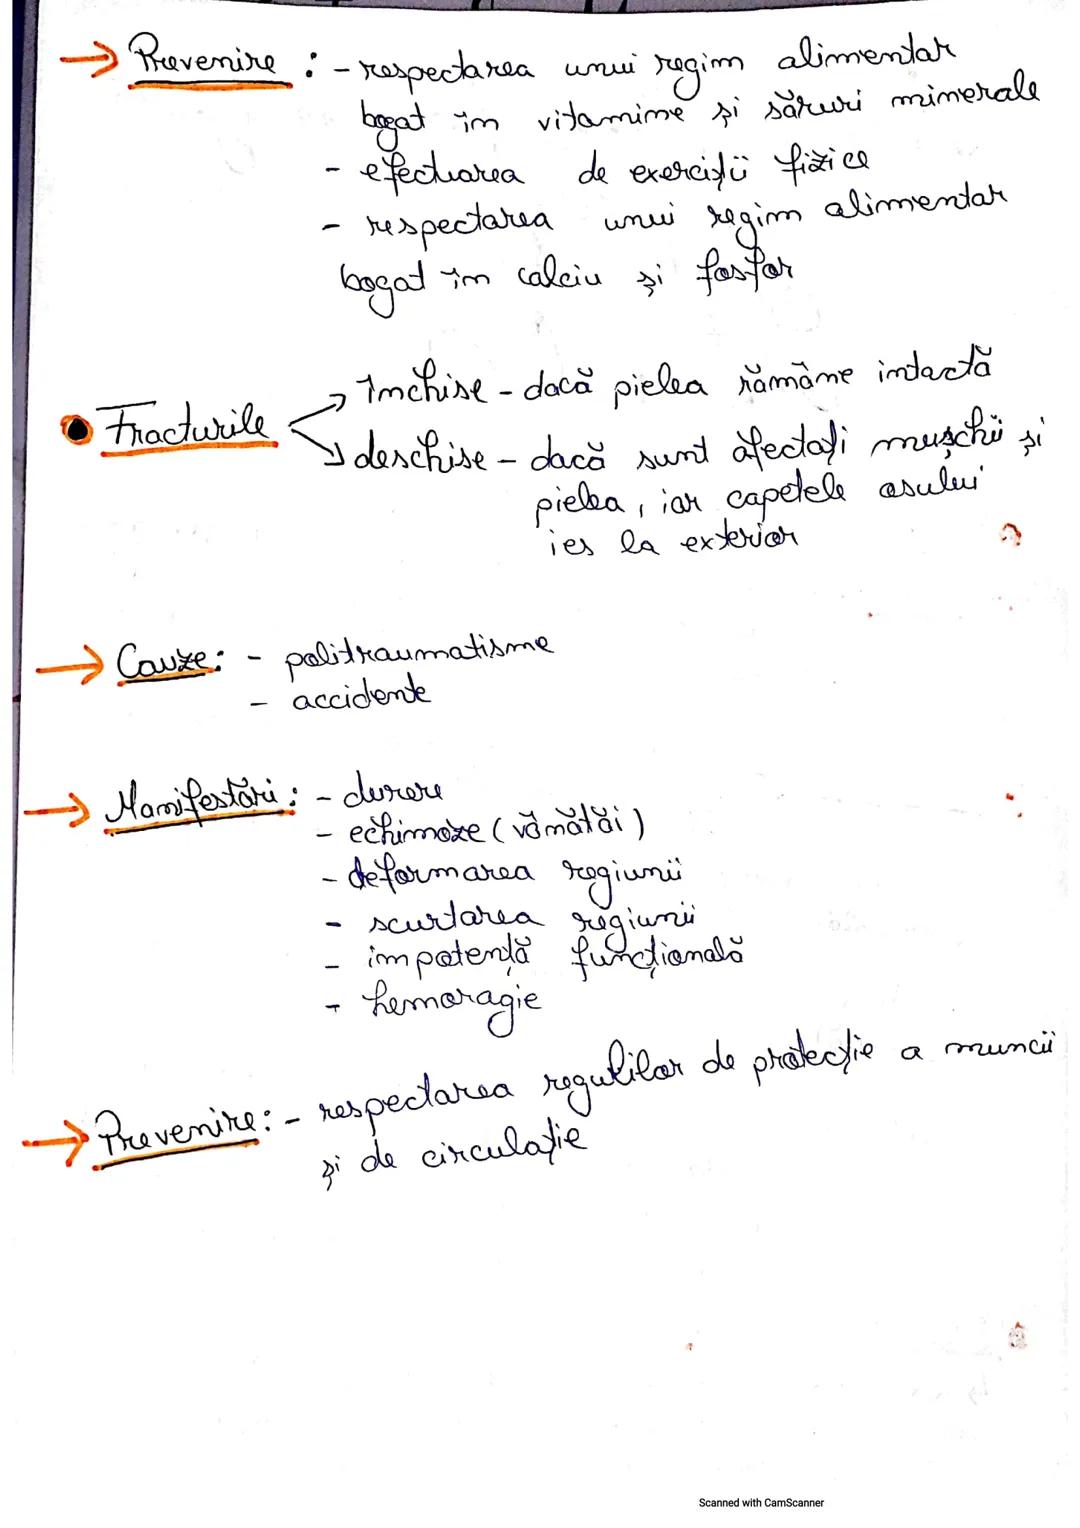 → Prevenire : - respectarea unui regim alimentar
bogat în vitamine și săruri minerale
- efectuarea de exerciții fizice
- respectarea unui regim alimentar
bogat în calciu și fosfor
• Fracturile → închise - dacă pielea rămâne intactă
→ deschise - dacă sunt afectați mușchii și
pielea, iar capetele osului
ies la exterior
→ Cauze: - politraumatisme
- accidente
→ Manifestări: - durere
- echimoze (vămătăi)
- deformarea regiunii
- scurtarea regiunii
- impotență funcțională
- hemoragie
→ Prevenire: - respectarea regulilor de protecție a muncii
și de circulație
Scanned with CamScanner